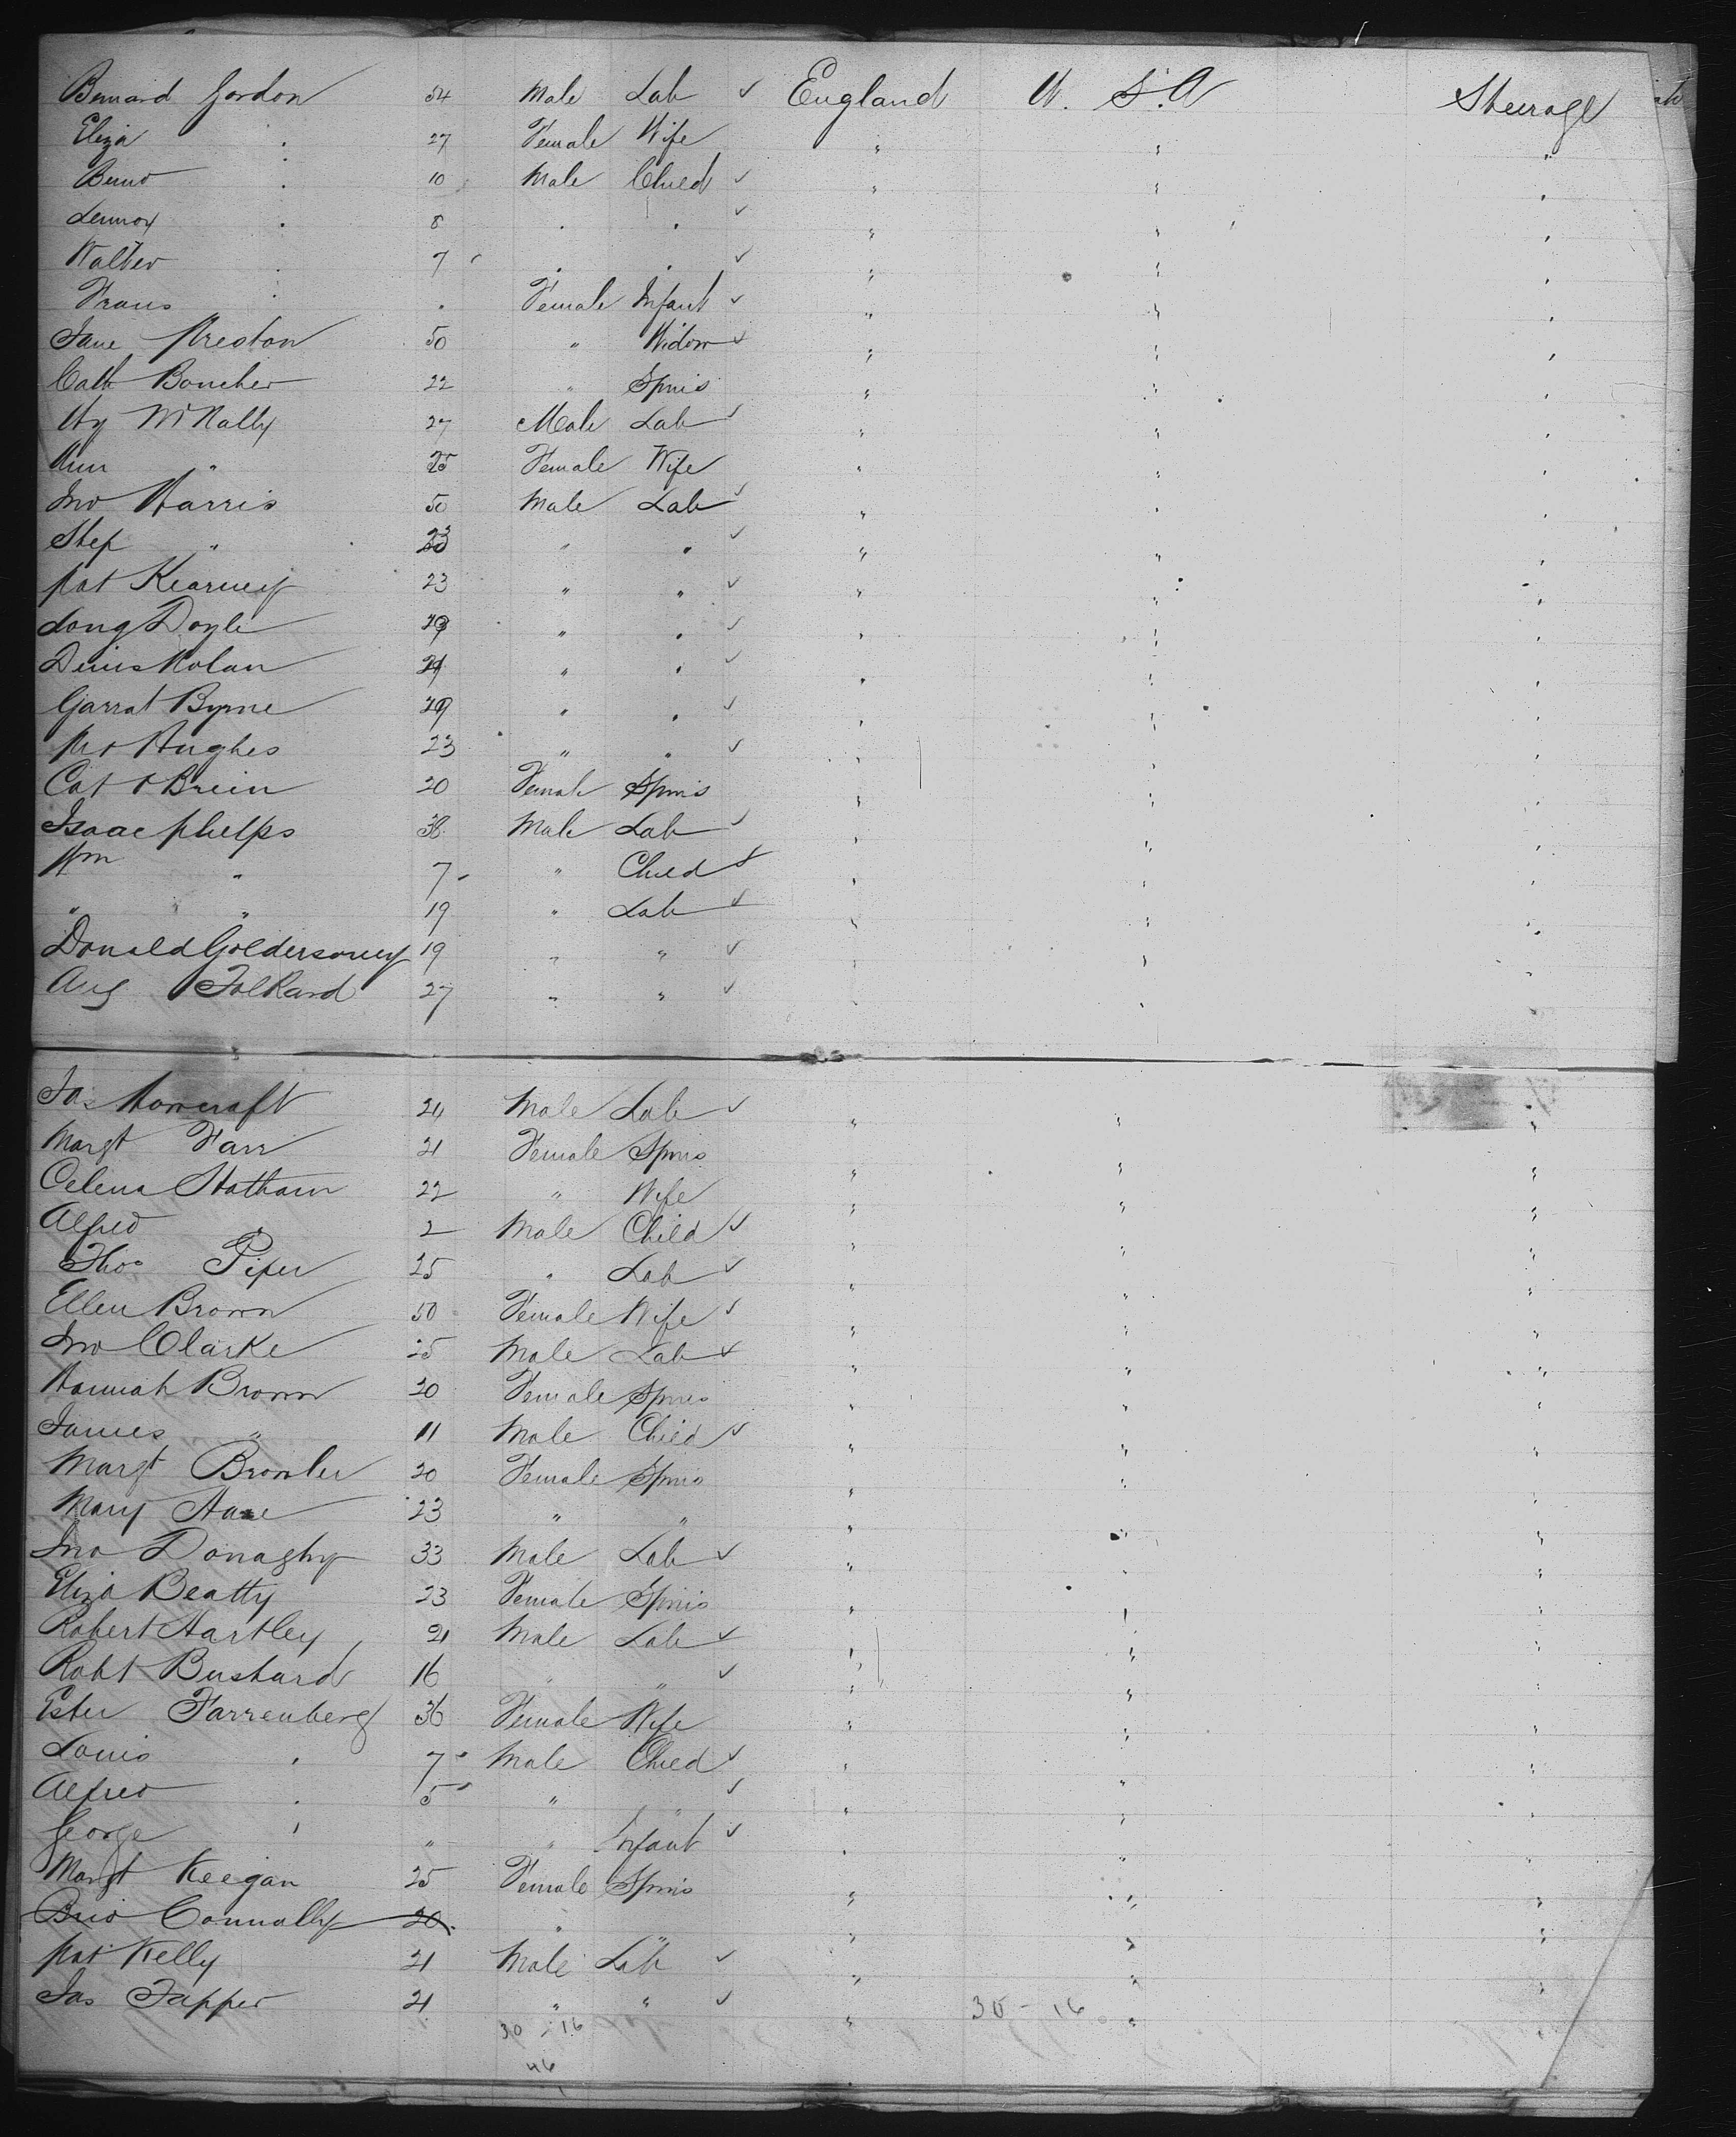 Bernard Gordon 34 Male Lab ✓ England U. S. A Steerage
Eliza . 27 Female Wife " " "
Beno . 10 Male Child ✓ " " "
Lennox . 8 . . ✓ " " "
Walter . 7 . . ✓ " " "
Frans . . Female Infant ✓ " " "
Jane Preston 50 " Widow ✓ " " "
Cath Boucher 22 " Spins " " "
Hy McNally 27 Male Lab ✓ " " "
Ann " 25 Female Wife " " "
Jno Harris 50 Male Lab ✓ " " "
Step " 23 " " ✓ " " "
Pat Kearney 23 " " ✓ " " "
Long Doyle " " ✓ " " "
Denis Nolan " " ✓ " " "
Garrat Byrne " " ✓ " " "
Hughes 23 " " ✓ " " "
Cat O Brein 20 Female Spins " " "
Isaac Phelps 38 Male Lab ✓ " " "
Wm " 7 " Child ✓ " " "
" " 19 " Lab ✓ " " "
Donald 19 " " ✓ " " "
Aug Folkard 27 " " ✓ " " "
Ja. Howcraft 24 Male Lab ✓ " " "
Margt Farr 21 Female Spins " " "
Celena Statham 22 " Wife " " "
Alfred 2 Male Child ✓ " " "
Thos Piper 25 " Lab ✓ " " "
Ellen Brown 50 Female Wife ✓ " " "
Jno Clarke 25 Male Lab ✓ " " "
Hannah Brown 20 Female Spins " " "
James " 11 Male Child ✓ " " "
Margt 20 Female Spins " " "
Mary 23 " " " " "
Jno Donaghy 33 Male Lab ✓ " " "
Eliza Beatty 23 Female Spins " " "
Robert Hartley 21 Male Lab ✓ " " "
Robt Bushard 16 " " ✓ " " "
Ester Farrenberg 36 Female Wife " " "
Louis " 7 Male Child ✓ " " "
Alfred " 5 " " ✓ " " "
George " " " Infant ✓ " " "
Margt Keegan 25 Female Spins " " "
Connolly 20 " " " " "
Pat Kelly 21 Male Lab ✓ " " "
Jas Tapper 21 " " ✓ " " "
30 - 16 30 - 16
46